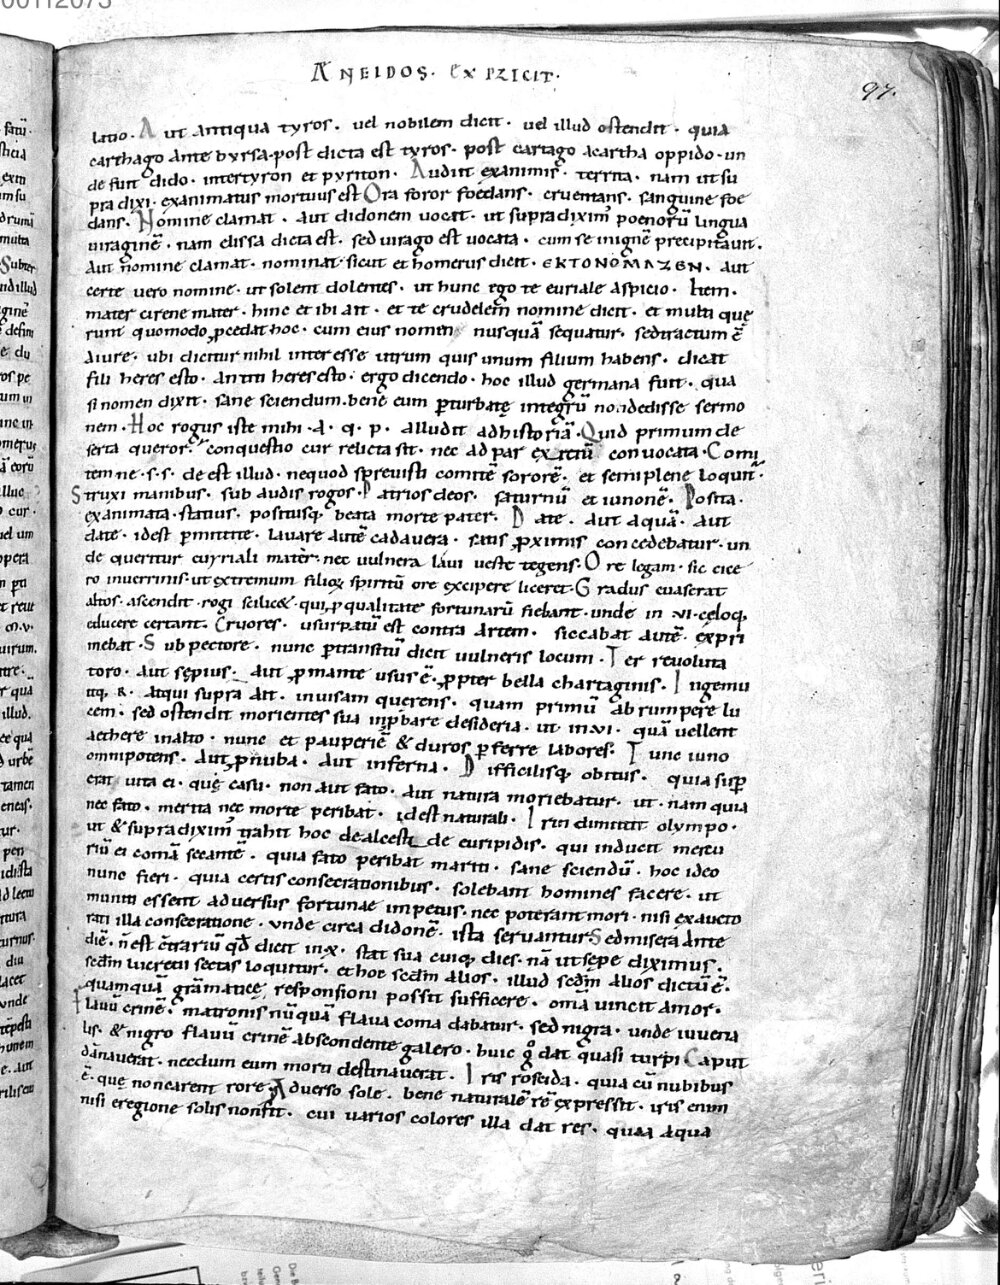 00112075
ANEIDOS. EXPLICIT.
97.
latio. Aut antiqua tyros. uel nobilem dicit. uel illud ostendit. quia
carthago ante byrsa. post dicta est tyros. post cartago acartha oppido. un
de fuit dido. intertyron et pyriton. Audiit exanimis. territa. nam ut su
pra dixi. exanimatus mortuus est Ora soror foedans. cruentans. sanguine foe
dans. Nomine clamat. aut didonem uocat. ut supra diximꝰ poenorū lingua
uiraginē. nam elissa dicta est. sed uirago est uocata. cum se inignē precipitauit.
Aut nomine clamat. nominat. sicut et homerus dicit. ΕΚΤΟΝΟΜΑΖΕΝ. aut
certe uero nomine. ut solent dolentes. ut hunc ego te euriale aspicio. Item.
mater cirene mater. hinc et ibi ait. et te crudelem nomine dicit. et multi quę
runt quomodo ꝓcedat hoc. cum eius nomen nusquā sequatur. sed tractum ē
aiure. ubi dicitur nihil interesse utrum quis unum filium habens. dicat
fili heres esto. an titi heres esto. ergo dicendo. hoc illud germana fuit. qua
si nomen dixit. sane sciendum. bene eum ꝑturbatę integrū non dedisse sermo
nem. Hoc rogus iste mihi. a. q. p. alludit adhistoriā. Quid primum de
serta queror. conquestio cur relicta sit. nec ad par exitiū conuocata. Comi
temne. s. s. de est illud. nequod spreuisti comitē sororē. et semiplene loquit̄.
Struxi manibus. sub audis rogos. Patrios deos. saturnū et iunonē. Posita.
exanimata. statius. positusq; beata morte pater. Date. aut aquā. aut
date. idest ꝑmittite. lauare autē cadauera. satis ꝓximis concedebatur. un
de queritur euriali mater. nec uulnera laui ueste tegens. Ore legam. sic cice
ro inuerrinis. ut extremum filioꝝ spiritū ore excipere liceret. Gradus euaserat
altos. ascendit. rogi scilic&. qui ꝓ qualitate fortunarū fiebant. unde in vi. celoq;
educere certant. Cruores. usurpatū est contra artem. siccabat autē. expri
mebat. Sub pectore. nunc ꝑ transitū dicit uulneris locum. Ter reuoluta
toro. aut sepius. aut ꝓ mante usus ē. ꝓpter bella chartaginis. Ingemu
itq; R. atqui supra ait. inuisam querens. quam primū abrumpere lu
cem. sed ostendit morientes sua inꝓbare desideria. ut in vi. quā uellent
aethere inalto. nunc et pauperiē & duros ꝑferre labores. Tunc iuno
omnipotens. aut ꝓnuba. aut inferna. Difficilisq; obitus. quia suꝑ
erat uita ei. quę casu. non aut fato. aut natura moriebatur. ut. nam quia
nec fato. merita nec morte peribat. idest naturali. Irin dimittit olympo.
ut & supra diximꝰ trahit hoc de alcesti de euripidis. qui inducit mercu
riū ei comā secantē. quia fato peribat mariti. sane sciendū. hoc ideo
nunc fieri. quia certis consecrationibus. solebant homines facere. ut
muniti essent aduersus fortunae impetus. nec poterant mori. nisi exaucto
rati illa consecratione. unde circa didonē. ista seruantur Sed misera ante
diē. n̄ est c̄trariū qd̄ dicit in x. stat sua cuiq; dies. nā ut sepe diximus.
secdm̄ lucretii sectas loquitur. et hoc secdm̄ alios. illud secdm̄ alios dictū ē.
quamquā grāmaticę responsioni possit sufficere. om̄a uincit amor.
Flauū crinē. matronis nūquā flaua coma dabatur. sed nigra. unde iuuena
lis. & nigro flauū crinē abscondente galero. huic g̊ dat quasi turpi Caput
dānauerat. necdum eum morti destinauerat. Iris roseida. quia cū nubibus
ē. quę non carent rore. Aduerso sole. bene naturalē rē expressit. iris enim
nisi eregione solis non fit. cui uarios colores illa dat res. quaa aqua